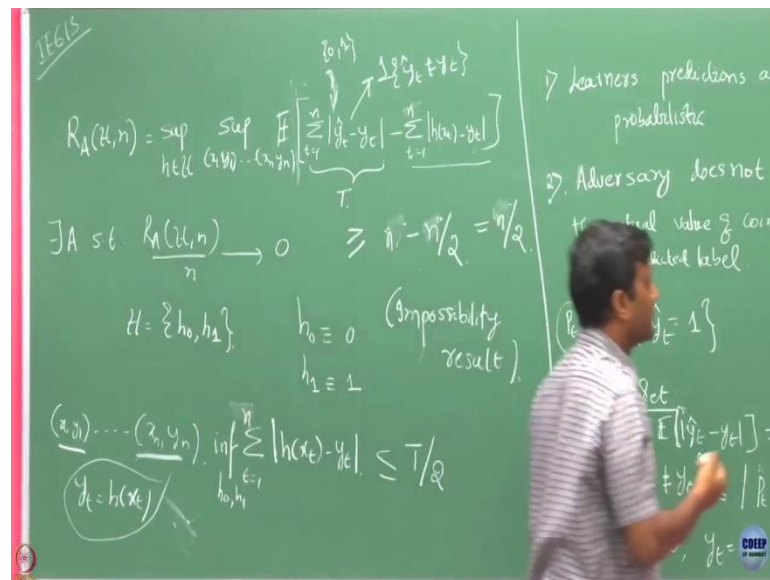 IE613
{0,1}
1{ŷ_t ≠ y_t}
R_A(H,n) = sup_{h∈H} sup_{(x_1 y_1)...(x_n y_n)} E[ Σ_{t=1}^n |ŷ_t - y_t| - Σ_{t=1}^n |h(x_t) - y_t| ]
T
∃A s.t. R_A(H,n)/n → 0 ≥ n - n/2 = n/2.
H = {h_0, h_1}. h_0 ≡ 0
h_1 ≡ 1
(Impossibility
result).
(x_1 y_1) ..... (x_n, y_n). inf_{h_0, h_1} Σ_{t=1}^n |h(x_t) - y_t| ≤ T/2
y_t = h(x_t)
1) Learners predictions
probabilistic
2). Adversary does not
value of
label.
= 1}
E[|ŷ_t - y_t|] =
y_t =
CDEEP
IIT BOMBAY